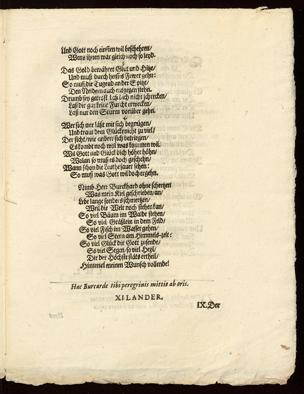 Und Gott noch einsten wil bescheren/
Wenn ihnen wär gleich noch so leyd.
Das Gold bewähret Glut und Hitze/
Und muß durch heisses Fewer gehn:
So muß die Tugend an der Spitze/
Den Neidern auch entgegen stehn.
Drumb sey getrost laß dich nicht schrecken/
Laß dir kein Furcht erwecken/
Laß nur den Sturm vorüber gehn.
Wer sich nur läst mit sich begnügen/
Und traut dem Glücke nicht zu viel/
Der sicht/wie andere sich betriegen/
Es kombt noch wol was kommen wil.
Wil Gott und Glück dich höher haben/
Wolan so muß es doch geschehn/
Wann schon die Leuthe sauer sehen:
So muß was Gott wil doch ergehn.
Nimb Herr Burckhard ohne schertzen
Was mein Kiel geschrieben/an/
Lebe lange sonder schmertzen/
Weil die Welt noch stehen kan/
So viel Bäum im Walde stehen/
So viel Gräslein in dem Feld/
So viel Fisch im Wasser gehen/
So viel Stern am Himmels-zelt:
So viel Glück dir Gott zusende/
So viel Segen/so viel Heyl/
Die der Höchste stäts ertheil/
Himmel meinen Wunsch vollende!
Hac Burcarde tibi peregrinis mittit ab oris.
XILANDER.
IX. Der